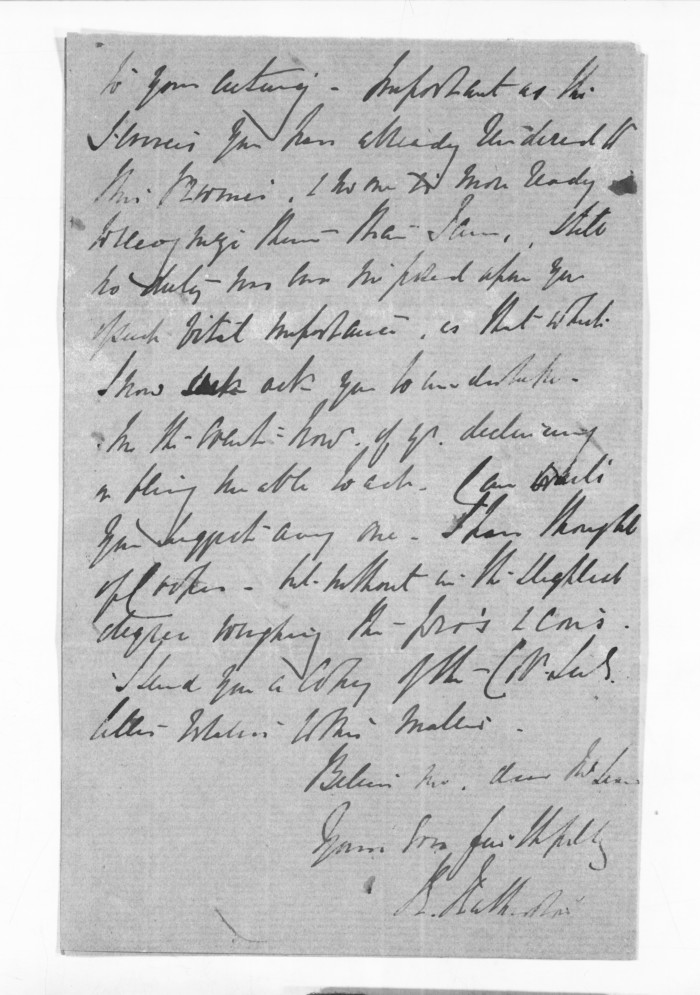 to your acting - Important as the
Services you have already rendered to
this Province, & no one is more ready
to recognize them than I am, still
no duty was ever imposed upon you
of such vital importance, as that which
I now ask you to undertake -
In the event - how of yr. declining
or being unable to act - Can
you suggest any one - I have thought
of Cooper - but without in the slightest
degree weighing the pro's & con's -
I send you a copy of the Col. Sec's.
letter relative to this matter -
Believe me, dear McLean
Yours Very faithfully